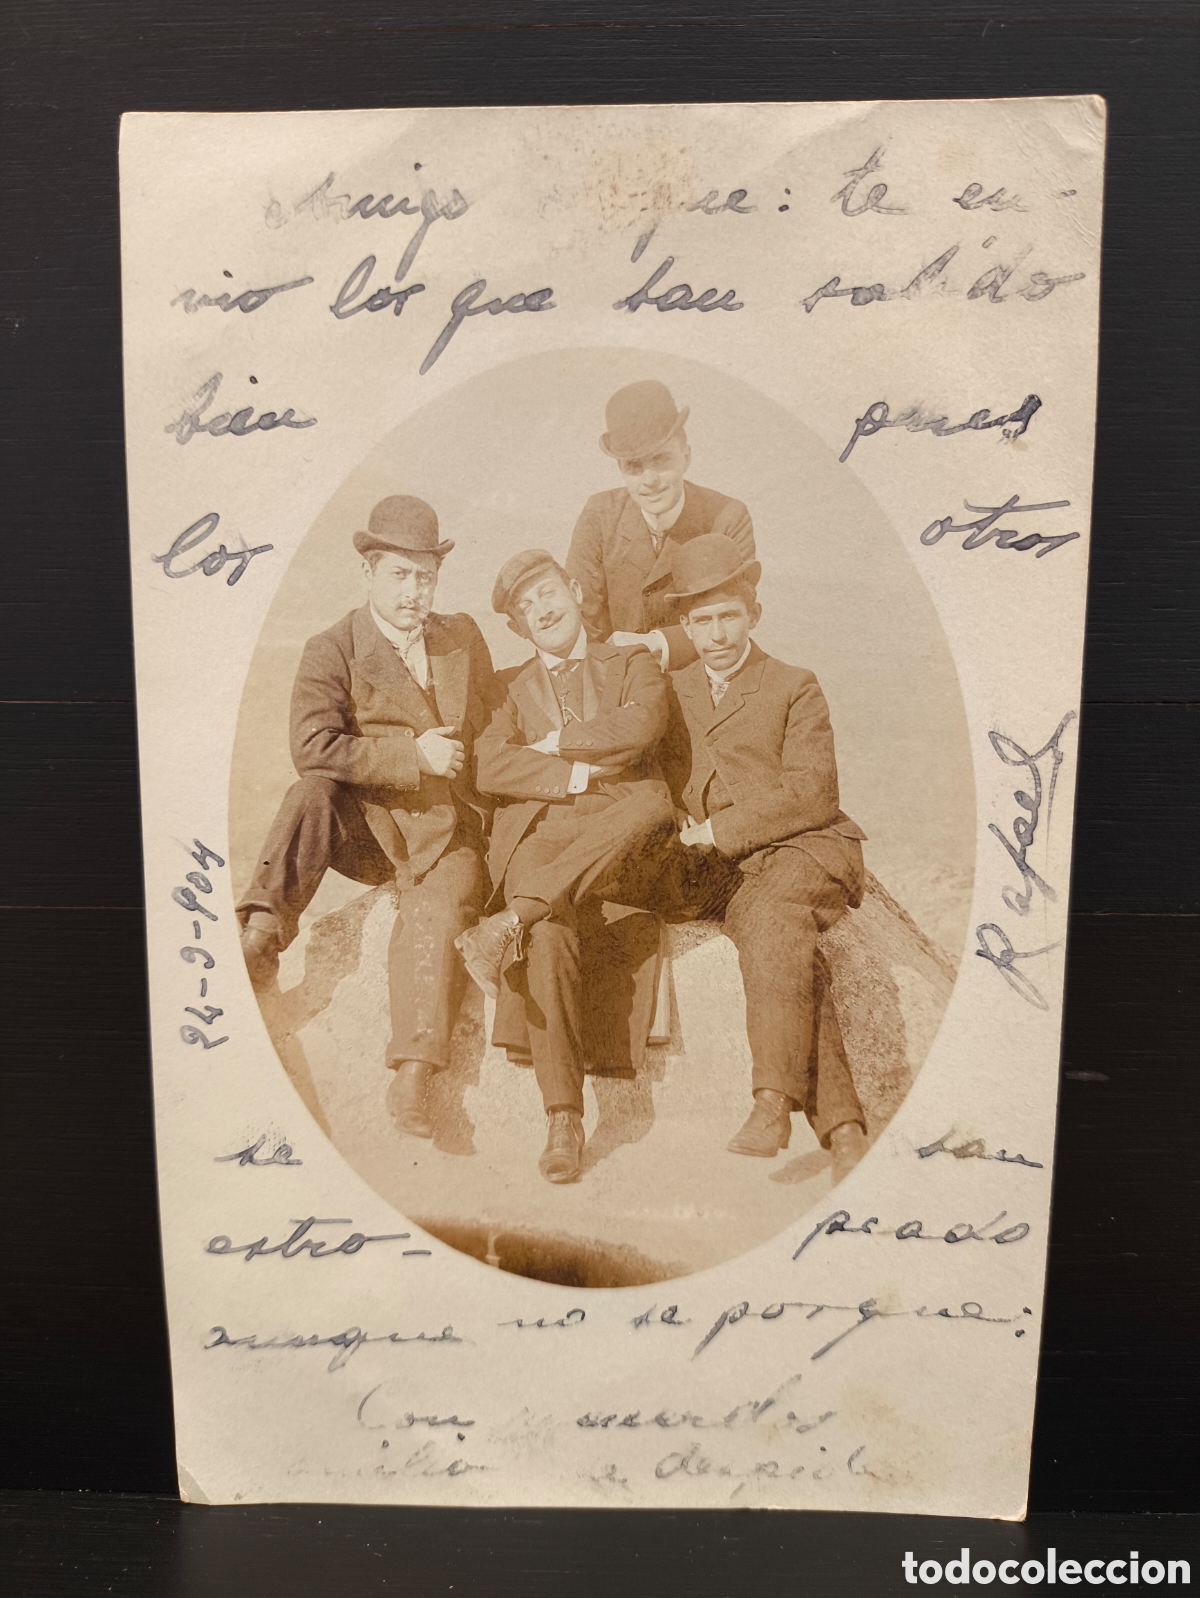 Amigo que: te en-
vio los que han salido
bien pues
los otros
Rafael
24-9-904
se han
estro- peado
aunque no se porque:
Con recuerdos
se despide
todocoleccion